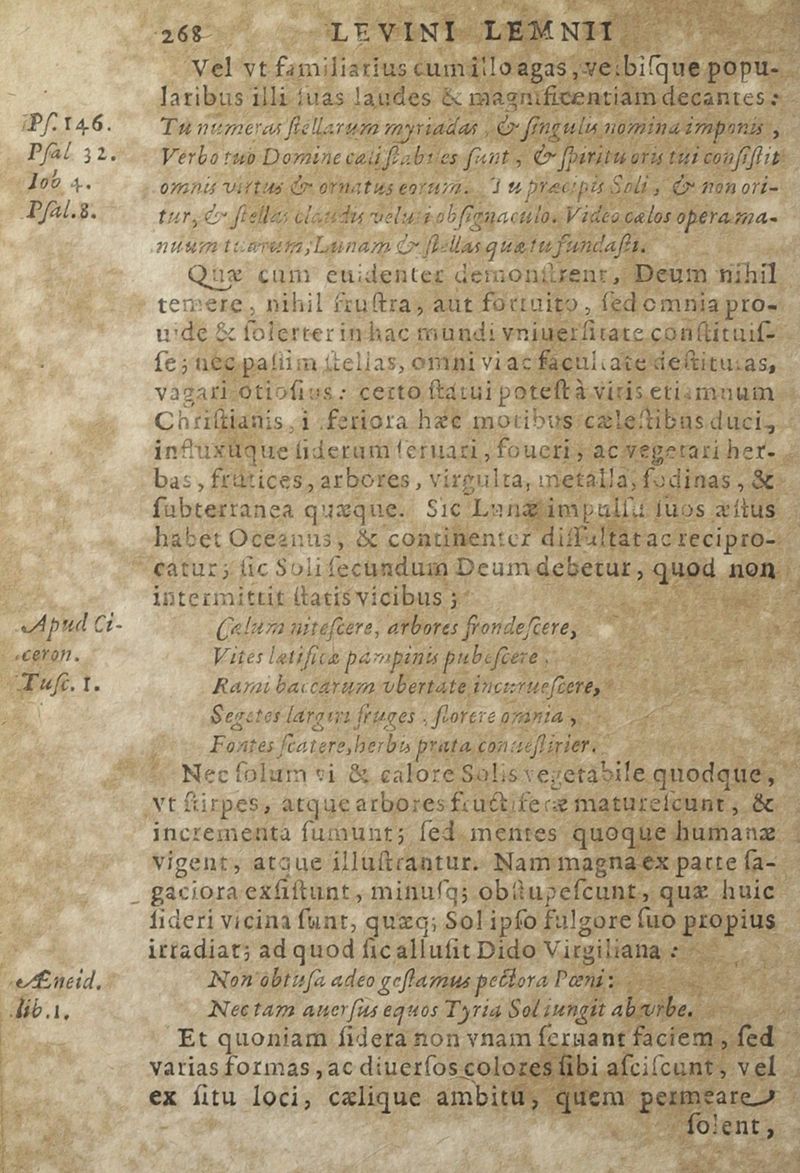 268 LEVINI LEMNII
Vel vt familiarius cum illo agas, verbisque popu-
laribus illi suas laudes & magnificentiam decantes:
Psf. 146. Tu numeras stellarum myriadas, & singulis nomina imponis,
Psal 32. Verbo tuo Domine cæli stabiles sunt, & spiritu oris tui consistit
Iob 4. omnis virtus & ornatus eorum. Tu præcipis Soli, & non ori-
Psal. 8. tur, & stellas claudis veluti obsignaculo. Video cælos opera ma-
nuum tuarum, Lunam & stellas quæ tu fundasti.
Quæ cum euidenter demonstrent, Deum nihil
temere, nihil frustra, aut fortuito, sed omnia pro-
uide & solerter in hac mundi vniuersitate constituis-
se; nec passim stellas, omni vi ac facultate destitutas,
vagari otiosius: certo statui potest à viris etiamnum
Christianis, inferiora hæc motibus cælestibus duci,
influxuque siderum seruari, foueri, ac vegetari her-
bas, frutices, arbores, virgulta, metalla, fodinas, &
subterranea quæque. Sic Lunæ impulsu suos æstus
habet Oceanus, & continenter diffultat ac recipro-
catur; sic Soli secundum Deum debetur, quod non
intermittit statis vicibus;
Apud Ci- Cælum nitescere, arbores frondescere,
ceron. Vites lætificæ pampinis pubescere,
Tusc. 1. Rami baccarum vbertate incuruescere,
Segetes largiri fruges, florere omnia,
Fontes scatere, herbis prata conuestirier.
Nec solum vi & calore Solis vegetabile quodque,
vt stirpes, atque arbores fructiferæ maturescunt, &
incrementa sumunt; sed mentes quoque humanæ
vigent, atque illustrantur. Nam magna ex parte sa-
gaciora exsistunt, minusq; obstupescunt, quæ huic
sideri vicina sunt, quæq; Sol ipso fulgore suo propius
irradiat; ad quod sic allusit Dido Virgiliana:
Æneid. Non obtusa adeo gestamus pectora Pœni:
lib. 1. Nec tam auersus equos Tyria Sol iungit ab vrbe.
Et quoniam sidera non vnam seruant faciem, sed
varias formas, ac diuersos colores sibi asciscunt, vel
ex situ loci, cælique ambitu, quem permeare
solent,